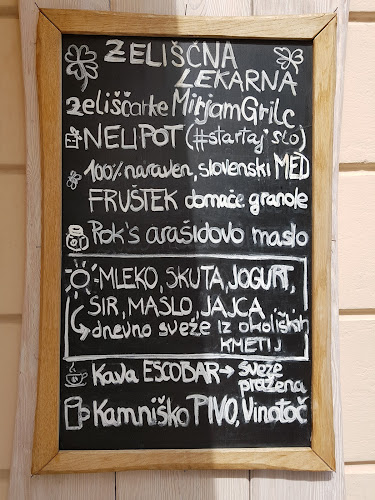 ZELIŠČNA
LEKARNA
zeliščarke Mirjam Grilc
NELIPOT (#startaj slo)
100% naraven, slovenski MED
FRUŠTEK domače granole
Rok's arašidovo maslo
-MLEKO, SKUTA, JOGURT,
SIR, MASLO, JAJCA
dnevno sveže iz okoliških
KMETIJ
Kava ESCOBAR → sveže
pražena
Kamniško PIVO, Vinotoč